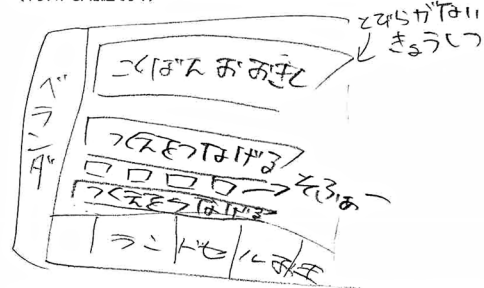 とびらがない
きょうしつ
こくばん おおきく
ベランダ
つくえをつなげる
そふぁー
つくえをつなげる
ランドセルおき